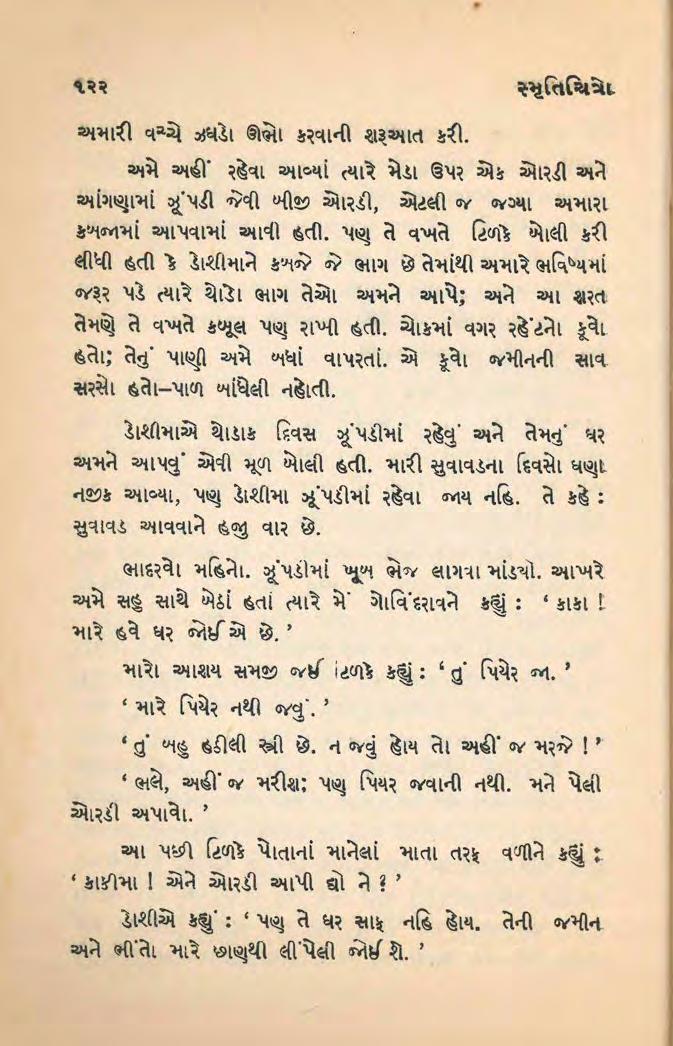 ૧૨૨ સ્મૃતિચિત્રો
અમારી વચ્ચે ઝઘડો ઊભો કરવાની શરૂઆત કરી.
અમે અહીં રહેવા આવ્યાં ત્યારે મેડા ઉપર એક ઓરડી અને
આંગણામાં ઝૂંપડી જેવી બીજી ઓરડી, એટલી જ જગ્યા અમારા
કબજામાં આપવામાં આવી હતી. પણ તે વખતે ટિળકે બોલી કરી
લીધી હતી કે ડોશીમાને કબજે જે ભાગ છે તેમાંથી અમારે ભવિષ્યમાં
જરૂર પડે ત્યારે થોડો ભાગ તેઓ અમને આપે; અને આ શરત
તેમણે તે વખતે કબૂલ પણ રાખી હતી. ચોકમાં વગર રહેંટનો કૂવો
હતો; તેનું પાણી અમે બધાં વાપરતાં. એ કૂવો જમીનની સાવ
સરસો હતો—પાળ બાંધેલી નહોતી.
ડોશીમાએ થોડાક દિવસ ઝૂંપડીમાં રહેવું અને તેમનું ઘર
અમને આપવું એવી મૂળ બોલી હતી. મારી સુવાવડના દિવસો ઘણા
નજીક આવ્યા, પણ ડોશીમા ઝૂંપડીમાં રહેવા જાય નહિ. તે કહે :
સુવાવડ આવવાને હજુ વાર છે.
ભાદરવો મહિનો. ઝૂંપડીમાં ખૂબ ભેજ લાગવા માંડયો. આખરે
અમે સહુ સાથે બેઠાં હતાં ત્યારે મેં ગોવિંદરાવને કહ્યું : ‘ કાકા !
મારે હવે ઘર જોઈએ છે. ’
મારો આશય સમજી જઈ ટિળકે કહ્યું : ‘ તું પિયેર જા. ’
‘ મારે પિયેર નથી જવું. ’
‘ તું બહુ હઠીલી સ્ત્રી છે. ન જવું હોય તો અહીં જ મરજે ! ’
‘ ભલે, અહીં જ મરીશ; પણ પિયર જવાની નથી. મને પેલી
ઓરડી અપાવો. ’
આ પછી ટિળકે પોતાનાં માનેલાં માતા તરફ વળીને કહ્યું :
‘ કાકીમા ! એને ઓરડી આપી દ્યો ને ? ’
ડોશીએ કહ્યું : ‘ પણ તે ઘર સાફ નહિ હોય. તેની જમીન
અને ભીંતો મારે છાણથી લીંપેલી જોઈશે. ’